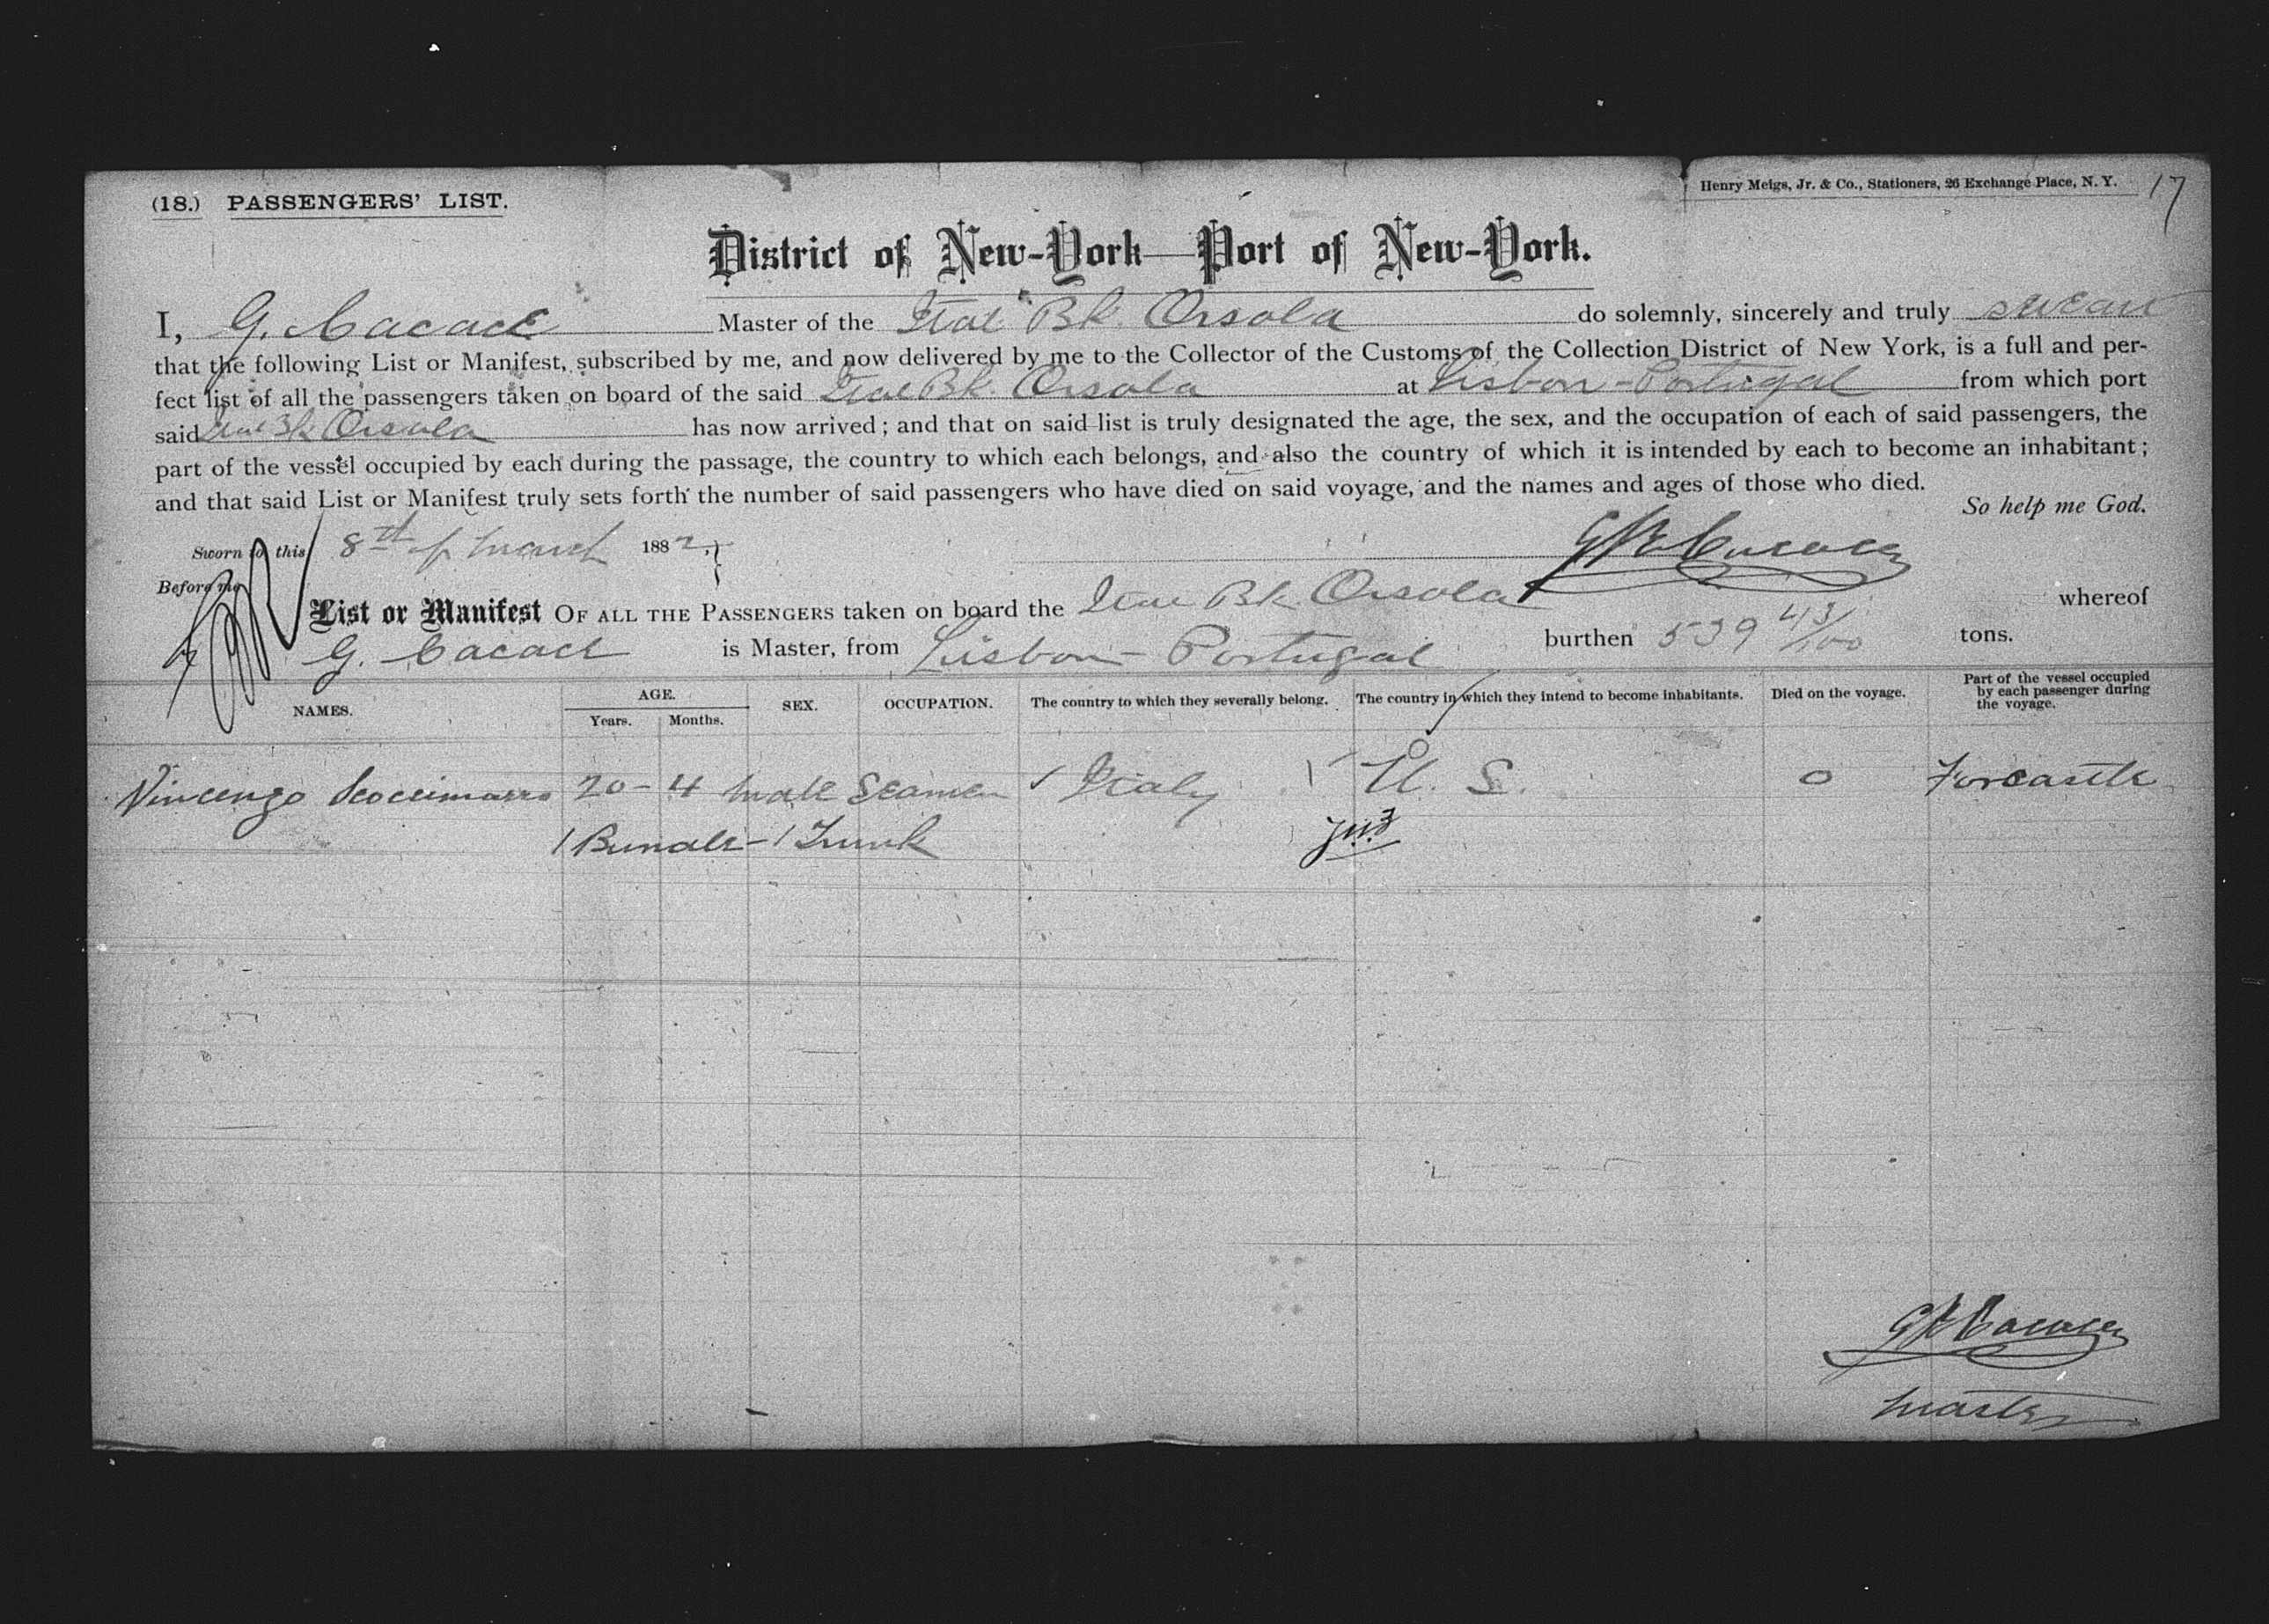 (18.) PASSENGERS' LIST.
Henry Meigs, Jr. & Co., Stationers, 26 Exchange Place, N. Y. 17
District of New-York—Port of New-York.
I, G. Cacace Master of the Ital Bk. Orsola do solemnly, sincerely and truly swear
that the following List or Manifest, subscribed by me, and now delivered by me to the Collector of the Customs of the Collection District of New York, is a full and per-
fect list of all the passengers taken on board of the said Ital Bk. Orsola at Lisbon - Portugal from which port
said Ital Bk Orsola has now arrived; and that on said list is truly designated the age, the sex, and the occupation of each of said passengers, the
part of the vessel occupied by each during the passage, the country to which each belongs, and also the country of which it is intended by each to become an inhabitant;
and that said List or Manifest truly sets forth the number of said passengers who have died on said voyage, and the names and ages of those who died.
So help me God.
Sworn to this 8th of March 1882,
Before me
List or Manifest OF ALL THE PASSENGERS taken on board the Ital Bk. Orsola whereof
G. Cacace is Master, from Lisbon - Portugal burthen 539 43/100 tons.
NAMES. AGE. Years. Months. SEX. OCCUPATION. The country to which they severally belong. The country in which they intend to become inhabitants. Died on the voyage. Part of the vessel occupied by each passenger during the voyage.
Vincenzo 20 - 4 male Seaman Italy U. S. 0 Forcastle
1 Bundle - 1 Trunk
Master